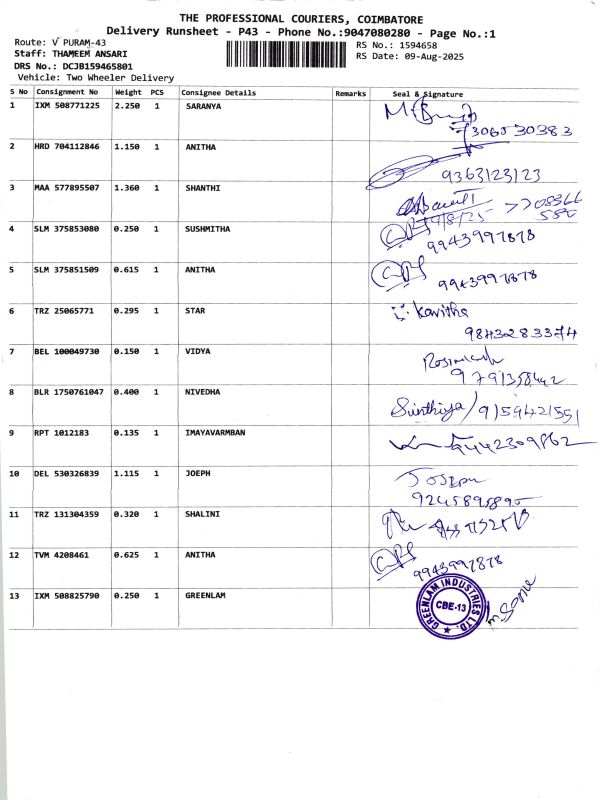 THE PROFESSIONAL COURIERS, COIMBATORE
Delivery Runsheet - P43 - Phone No.:9047080280 - Page No.:1
Route: V PURAM-43
Staff: THAMEEM ANSARI
DRS No.: DCJB159465801
Vehicle: Two Wheeler Delivery
RS No.: 1594658
RS Date: 09-Aug-2025
S No Consignment No Weight PCS Consignee Details Remarks Seal & Signature
1 IXM 508771225 2.250 1 SARANYA
306530383
2 HRD 704112846 1.150 1 ANITHA
9363123123
3 MAA 577895507 1.360 1 SHANTHI
9/8/25
4 SLM 375853080 0.250 1 SUSHMITHA
9943997878
5 SLM 375851509 0.615 1 ANITHA
9943997878
6 TRZ 25065771 0.295 1 STAR Kavitha
9843283374
7 BEL 100049730 0.150 1 VIDYA
9791358442
8 BLR 1750761047 0.400 1 NIVEDHA
/9159421551
9 RPT 1012183 0.135 1 IMAYAVARMBAN
9442309862
10 DEL 530326839 1.115 1 JOEPH Joseph
9245895895
11 TRZ 131304359 0.320 1 SHALINI
12 TVM 4208461 0.625 1 ANITHA
9943997878
13 IXM 508825790 0.250 1 GREENLAM
GREENLAM INDUSTRIES LTD.
CBE-13